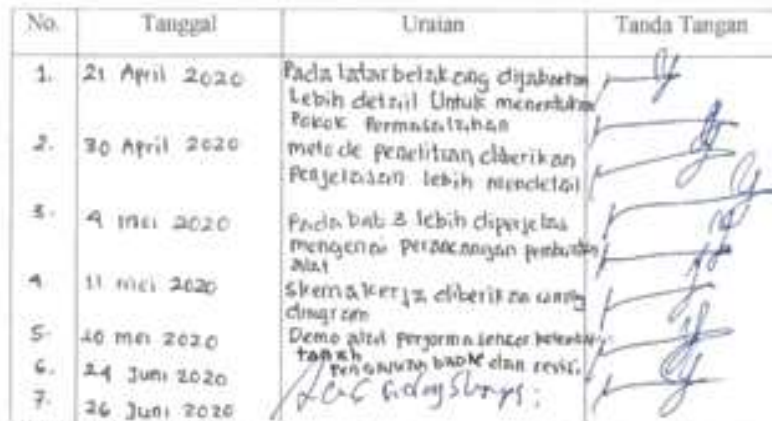 No. Tanggal Uraian Tanda Tangan
1. 21 April 2020 Pada latar belakang dijabarkan
Lebih detail Untuk menentukan
Pokok Permasalahan
2. 30 April 2020 metode penelitian diberikan
Penjelasan lebih mendetail
3. 9 mei 2020 Pada bab 3 lebih diperjelas
mengenai perancangan pembuatan
alat
4. 11 mei 2020 skema kerja diberikan
diagram
5. 20 mei 2020 Demo alat performa sensor
tanah
6. 24 Juni 2020 dan revisi
7. 26 Juni 2020